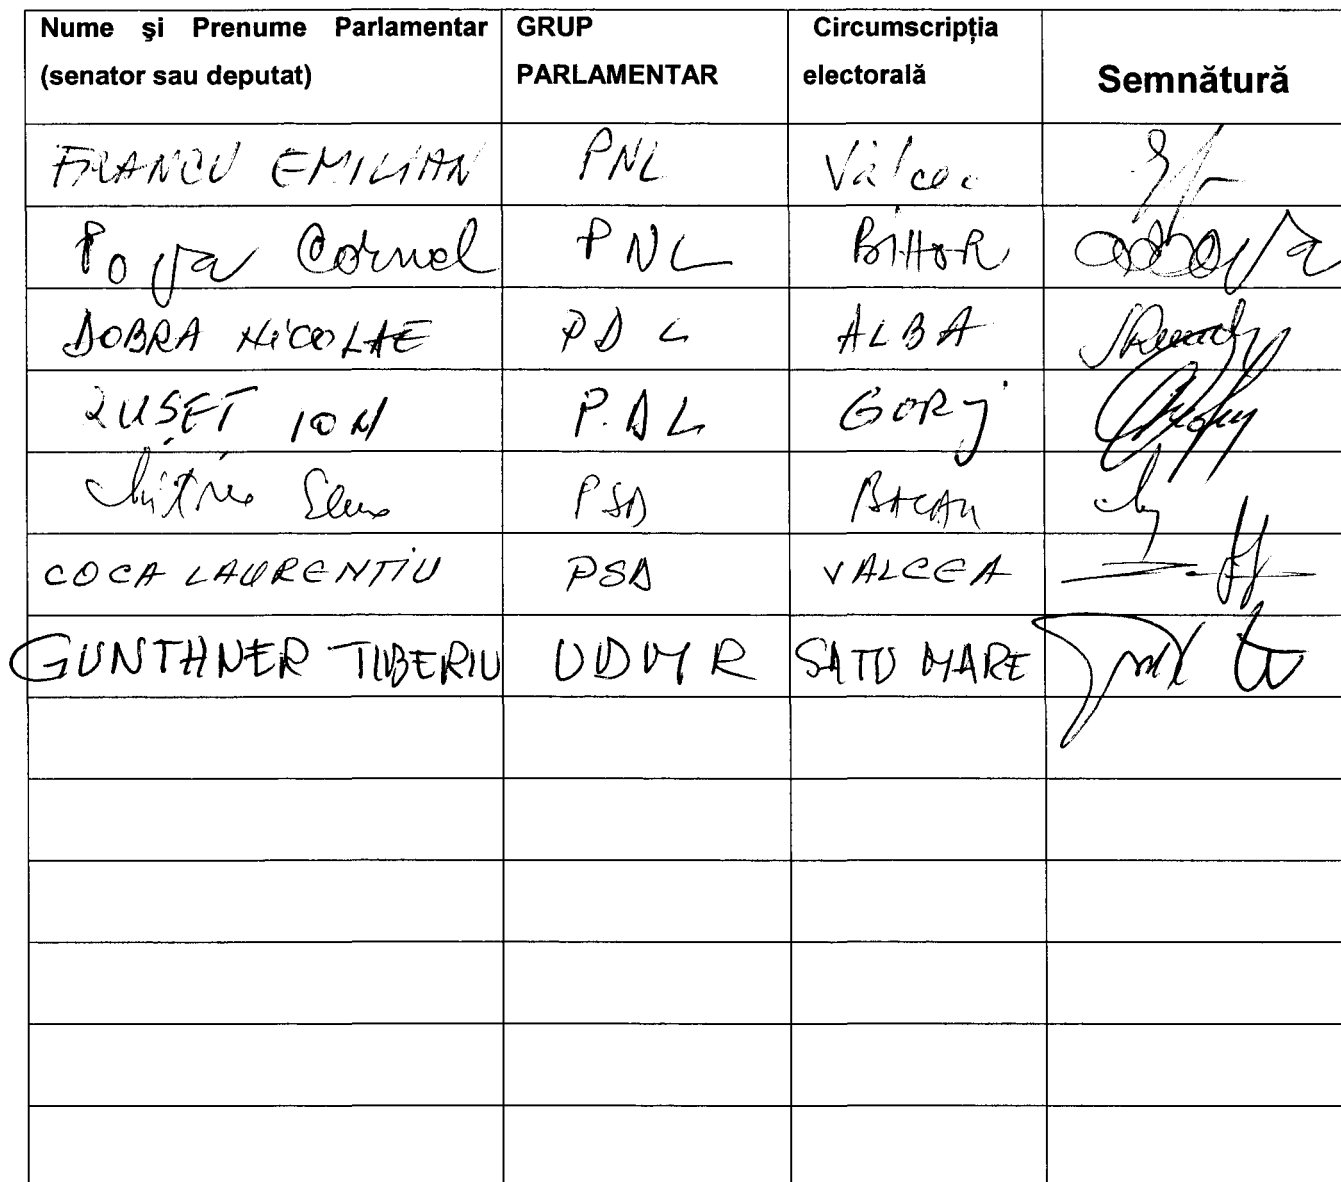 Nume şi Prenume Parlamentar (senator sau deputat) GRUP PARLAMENTAR Circumscripţia electorală Semnătură
FRANCU EMILIAN PNL Vâlcea
Popa Cornel PNL BIHOR
DOBRA NICOLAE PDL ALBA
RUSET ION P.D L GORJ
Elena PSD BACAU
COCA LAURENTIU PSD VALCEA
GUNTHNER TIBERIU UDMR SATU MARE